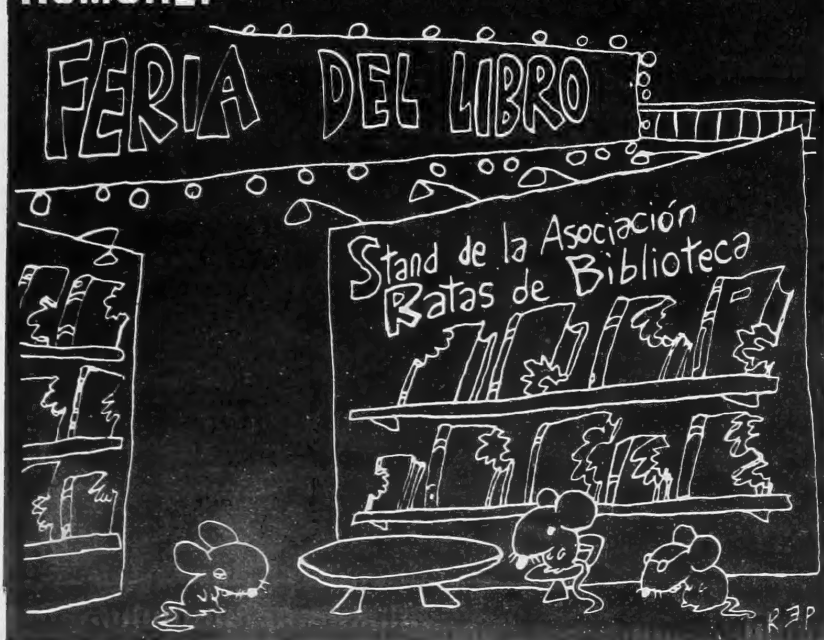 FERIA DEL LIBRO
Stand de la Asociación
Ratas de Biblioteca
REP